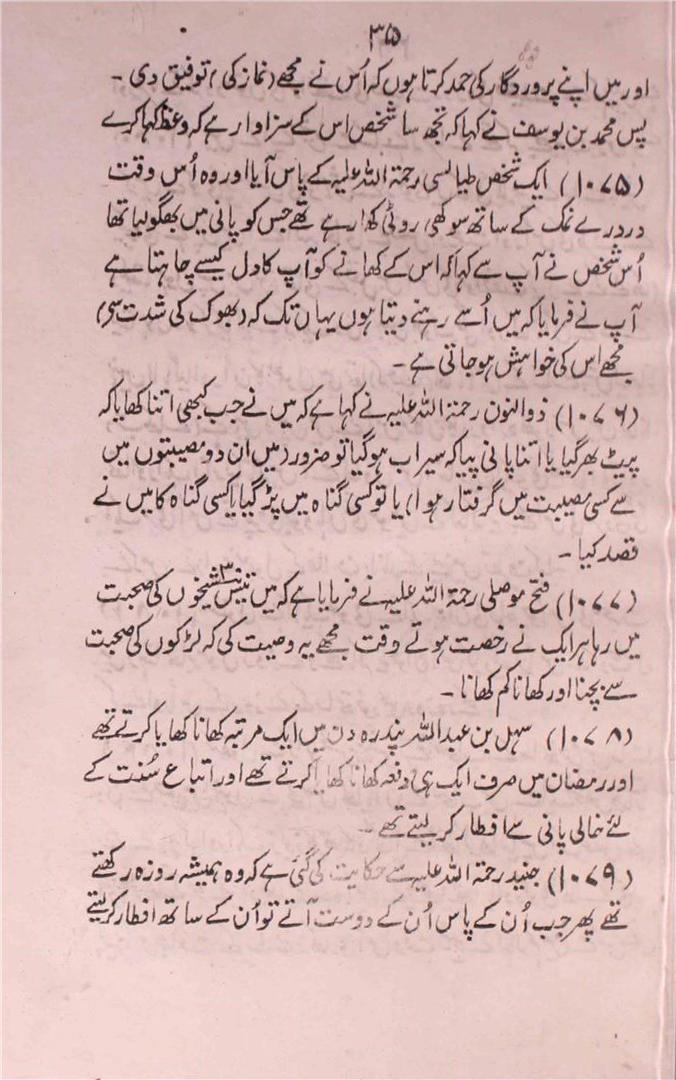 ۳۵
اور میں اپنے پروردگار کی حمد کرتا ہوں کہ اُس نے مجھے (نماز کی) توفیق دی ۔
پس محمد بن یوسف نے کہا کہ تجھ سا شخص اس کے سزاوار ہے کہ وعظ کہا کرے
(۱۰۷۵) ایک شخص طیالسی رحمۃ اللہ علیہ کے پاس آیا اور وہ اُس وقت
دردرے نمک کے ساتھ سوکھی روٹی کھا رہے تھے جس کو پانی میں بھگو لیا تھا
اُس شخص نے آپ سے کہا کہ اس کے کھانے کو آپ کا دل کیسے چاہتا ہے
آپ نے فرمایا کہ میں اُسے رہنے دیتا ہوں یہاں تک کہ (بھوک کی شدت سے)
مجھے اس کی خواہش ہو جاتی ہے ۔
(۱۰۷۶) ذوالنون رحمۃ اللہ علیہ نے کہا ہے کہ میں نے جب کبھی اتنا کھایا کہ
پیٹ بھر گیا یا اتنا پانی پیا کہ سیراب ہو گیا تو ضرور (میں ان دو مصیبتوں میں
سے کسی مصیبت میں گرفتار ہوا) یا تو کسی گناہ میں پڑ گیا یا کسی گناہ کا میں نے
قصد کیا ۔
(۱۰۷۷) فتح موصلی رحمۃ اللہ علیہ نے فرمایا ہے کہ میں تیس ۳۰ شیخوں کی صحبت
میں رہا ہر ایک نے رخصت ہوتے وقت مجھے یہ وصیت کی کہ لڑکوں کی صحبت
سے بچنا اور کھانا کم کھانا ۔
(۱۰۷۸) سہل بن عبداللہ پندرہ دن میں ایک مرتبہ کھانا کھایا کرتے تھے
اور رمضان میں صرف ایک ہی دفعہ کھانا کھایا کرتے تھے اور اتباع سُنت کے
لئے خالی پانی سے افطار کر لیتے تھے ۔
(۱۰۷۹) جنید رحمۃ اللہ علیہ سے حکایت کی گئی ہے کہ وہ ہمیشہ روزہ رکھتے
تھے پھر جب اُن کے پاس اُن کے دوست آتے تو اُن کے ساتھ افطار کر لیتے